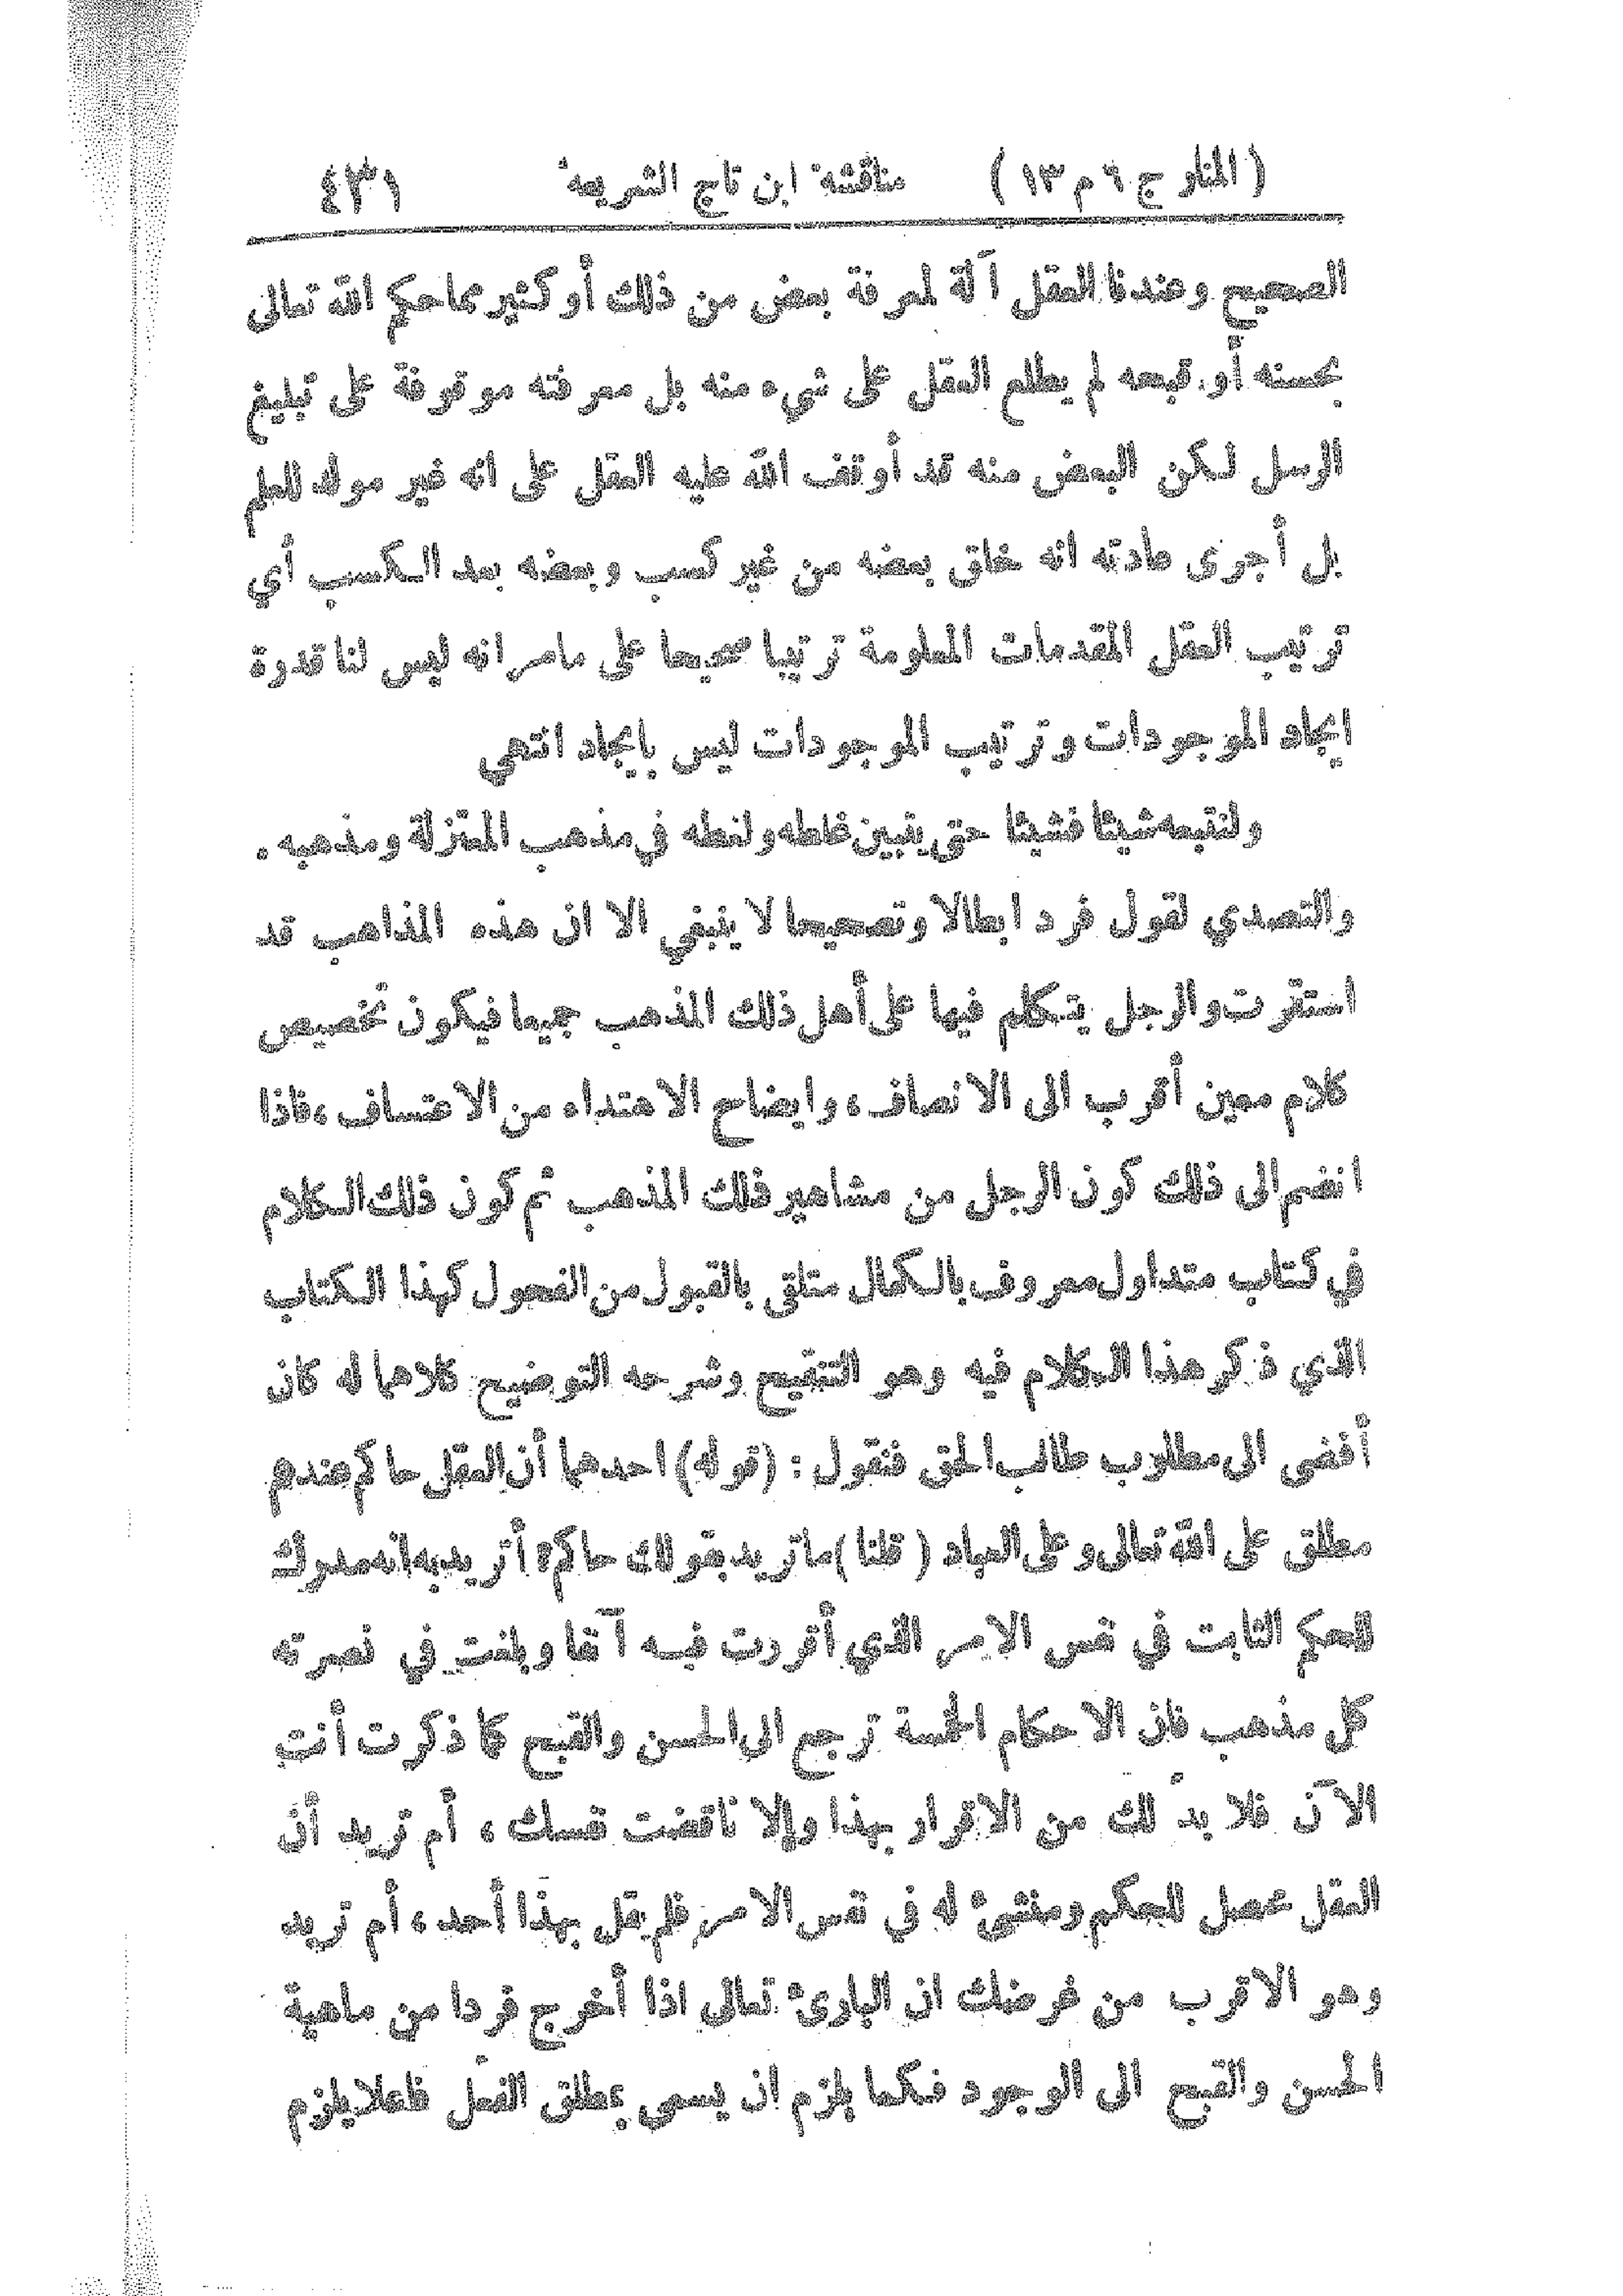 (المنار ج ٦ م ١٣) مناقشة ابن تاج الشريعة ٤٣١
الصحيح وعندنا العقل آلة لمعرفة بعض من ذلك أو كثير مما حكم الله تعالى
بحسنه أو قبحه لم يطلع العقل على شيء منه بل معرفته موقوفة على تبليغ
الرسل لكن البعض منه قد أوقف الله عليه العقل على انه غير مولد للعلم
بل أجرى عادته انه خلق بعضه من غير كسب وبعضه بعد الكسب أي
ترتيب العقل المقدمات المعلومة ترتيبا صحيحا على مامر انه ليس لنا قدرة
ايجاد الموجودات وترتيب الموجودات ليس بايجاد انتهى
ولنتبعه شيئا فشيئا حتى يتبين غلطه ولغطه في مذهب المعتزلة ومذهبه .
والتصدي لقول فرد ابطالا وتصحيحا لا ينبغي الا ان هذه المذاهب قد
استقرت والرجل يتكلم فيها على أهل ذلك المذهب جميعا فيكون تخصيص
كلام معين أقرب الى الانصاف، وايضاح الاهتداء من الاعتساف، فاذا
انضم الى ذلك كون الرجل من مشاهير ذلك المذهب ثم كون ذلك الكلام
في كتاب متداول معروف بالكمال متلقى بالقبول من الفحول كهذا الكتاب
الذي ذكر هذا الكلام فيه وهو التنقيح وشرحه التوضيح كلاهما له كان
أفضى الى مطلوب طالب الحق فنقول : (قوله) احدهما أن العقل حاكم عندهم
مطلق على الله تعالى وعلى العباد (قلنا) ما تريد بقولك حاكم؟ أتريد به انه مدرك
للحكم الثابت في نفس الامر الذي أقررت فيه آنفا وبلغت في نصرته
كل مذهب فان الاحكام الخمسة ترجع الى الحسن والقبح كما ذكرت أنت
الآن فلا بدّ لك من الاقرار بهذا وإلا ناقضت نفسك، أم تريد أنّ
العقل محصل للحكم ومنشئ له في نفس الامر فلم يقل بهذا أحد، أم تريد
وهو الاقرب من غرضك ان البارئ تعالى اذا أخرج فردا من ماهية
الحسن والقبح الى الوجود فكما يلزم ان يسمى بمطلق الفعل فاعلا يلزم